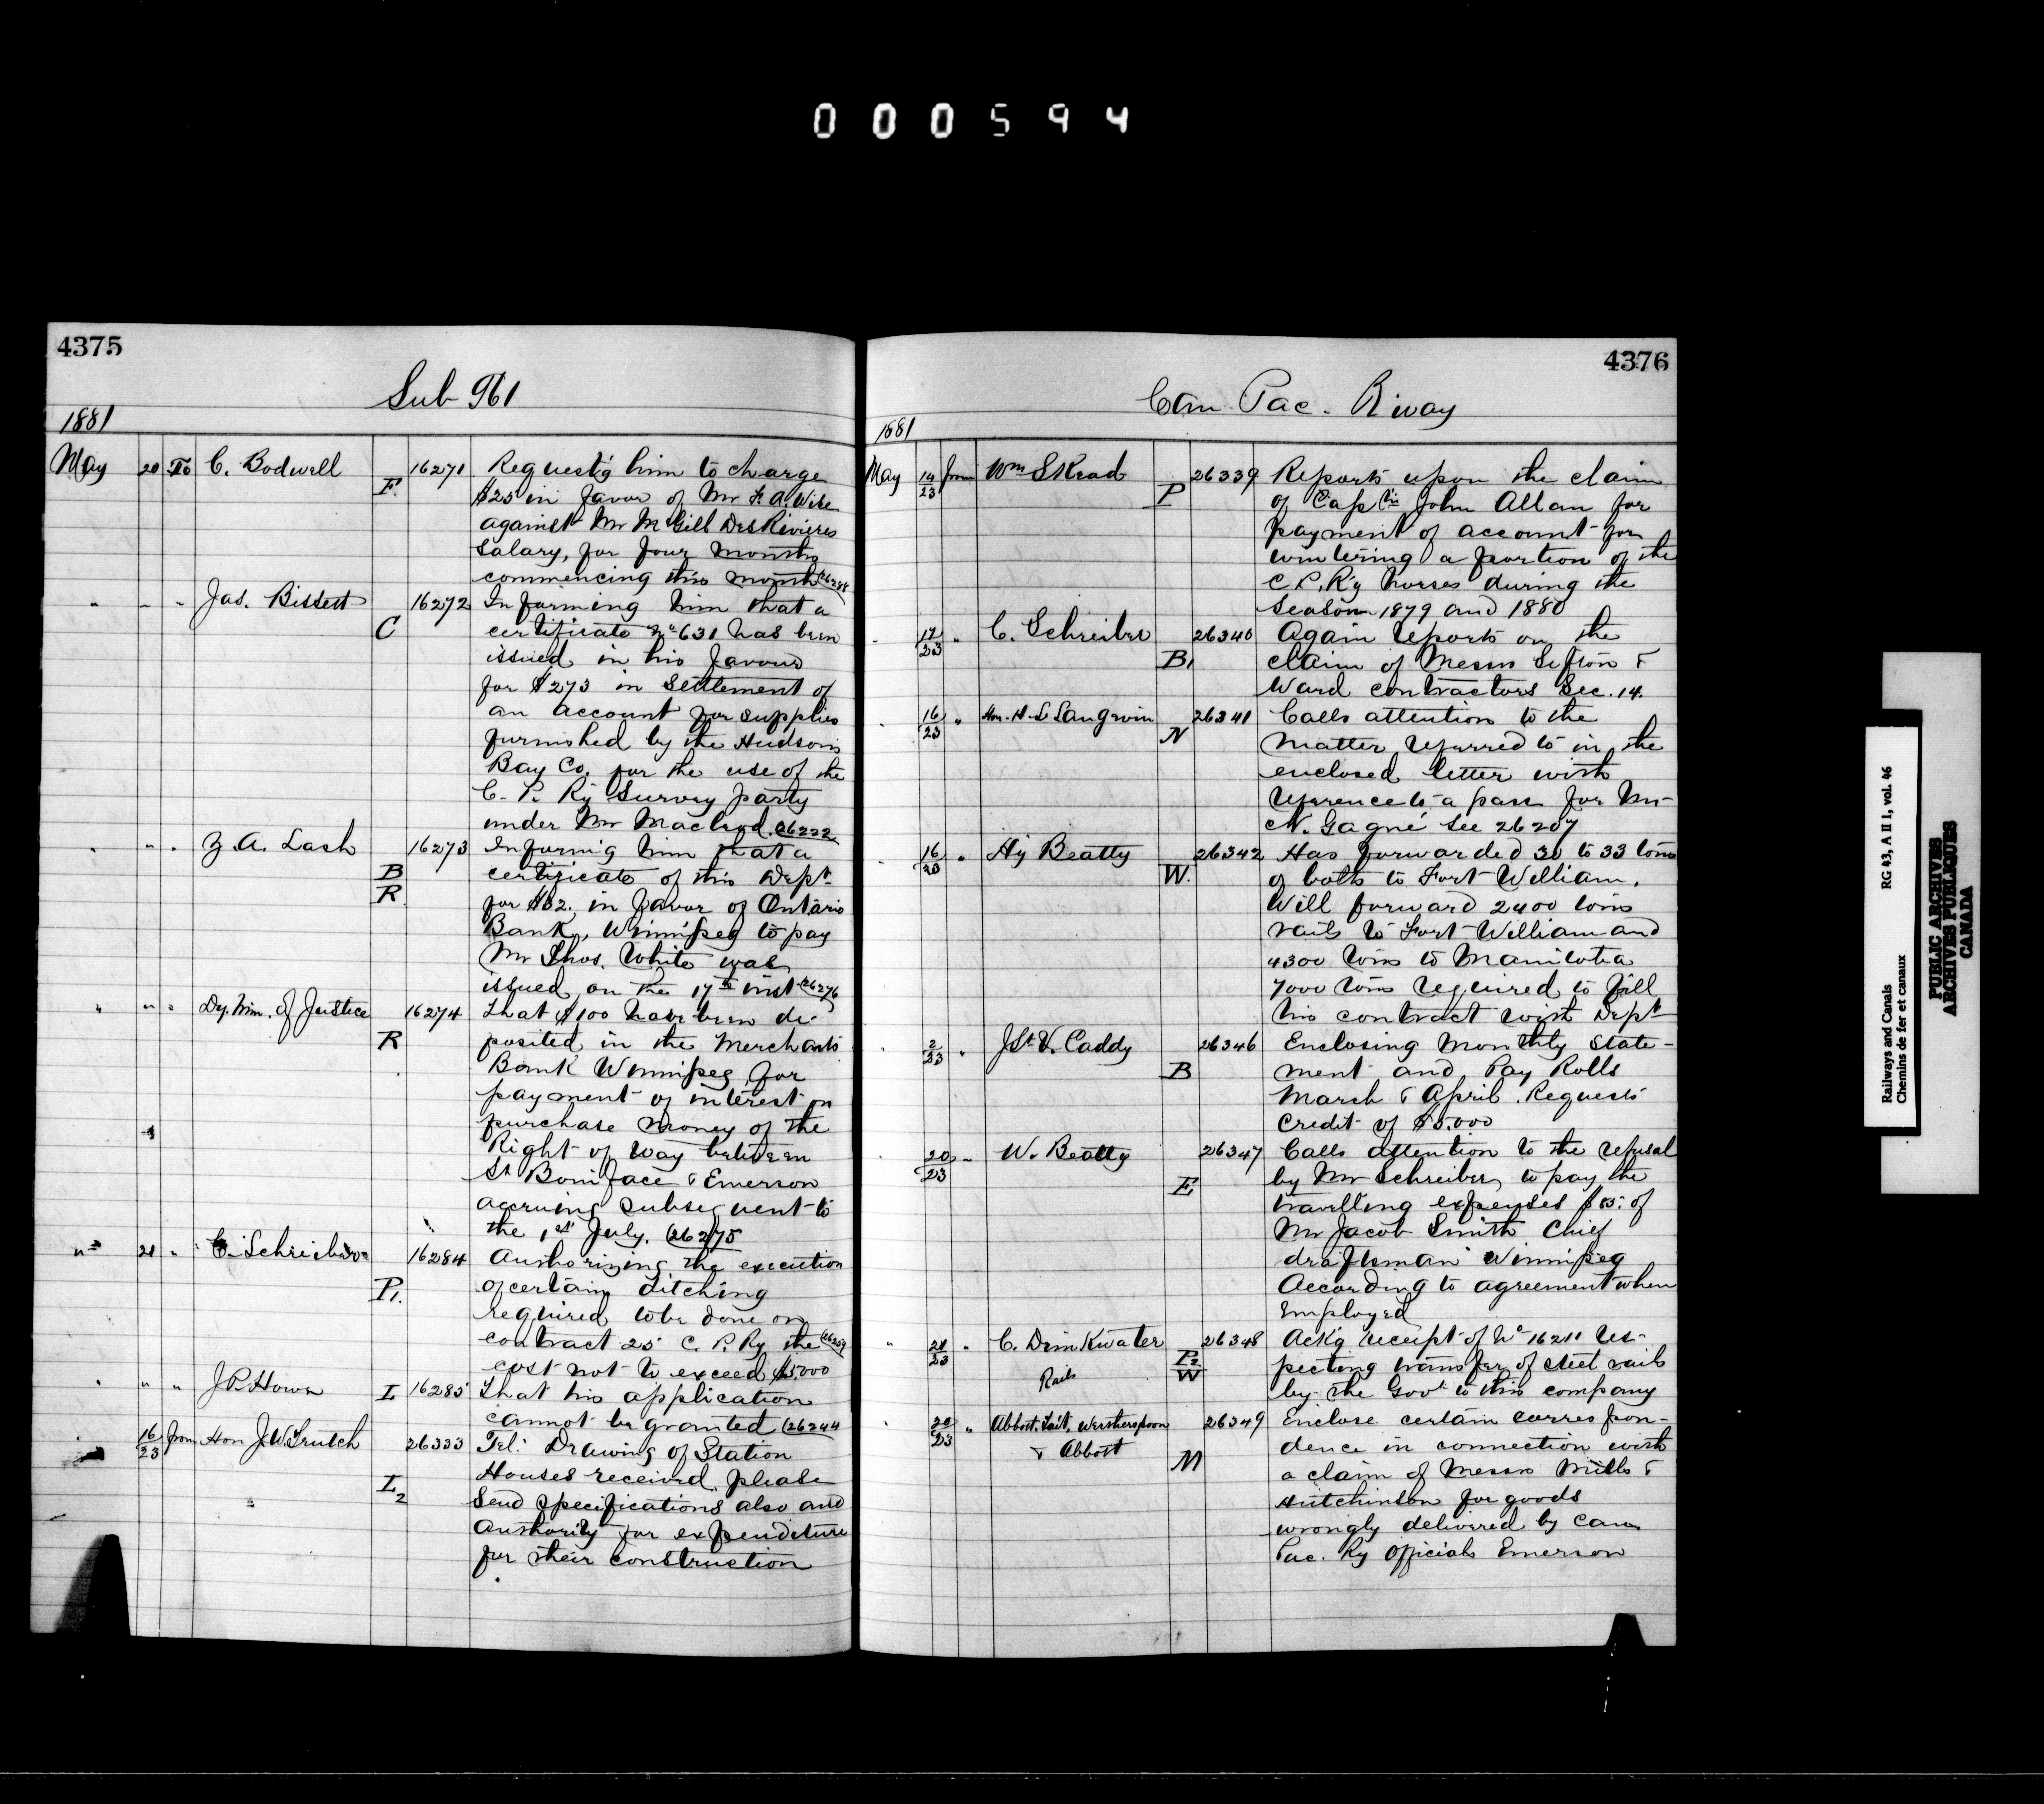 000594
4375
Sub 961
1881
May 20 To C. Bodwell F. 16271 Requestg him to charge
$25 in favor of Mr F. A. Wise
against Mr McGill DesRivieres
salary, for four months
commencing this month (26288
" " " Jas. Bissett C 16272 Informing him that a
certificate No 631 has been
issued in his favour
for $273 in settlement of
an account for supplies
furnished by the Hudson's
Bay Co. for the use of the
C. P. Ry Survey party
under Mr Macleod. (26222
" " " Z. A. Lash B R 16273 Informig him that a
certificate of this Dept
for $62. in favor of Ontario
Bank, Winnipeg to pay
Mr Thos. White was
issued on the 17th inst (26276
" " " Dy. Min. of Justice R 16274 That $100 have been de-
posited in the Merchants
Bank Winnipeg for
payment of interest on
purchase money of the
Right of way between
St Boniface & Emerson
accruing subsequent to
the 1st July. (26275
" 21 " C. Schreiber P1. 16284 Authorizing the execution
of certain ditching
required to be done on
contract 25 C. P. Ry the (26259
cost not to exceed $5000
" " " J P Howe L 16285 That his application
cannot be granted (26244
" 16/23 from Hon J. W. Trutch L2 26333 Tel: Drawing of Station
Houses received, please
send specifications also and
authority for expenditure
for their construction
4376
Can Pac. R'way
1881
May 14/23 from Wm Skead P 26339 Reports upon the claim
of Captn John Allan for
payment of account for
wintering a portion of the
C P. Ry horses during the
season 1879 and 1880
" 17/23 " C. Schreiber B1 26340 Again reports on the
claim of Messrs Sifton &
Ward contractors Sec. 14.
" 16/23 " Hon. H. L. Langevin N 26341 Calls attention to the
matter referred to in the
enclosed letter with
reference to a pass for Mr
N. Gagné see 26207
" 16/23 " Hy Beatty W. 26342 Has forwarded 30 to 33 tons
of bolts to Fort William.
Will forward 2400 tons
rails to Fort William and
4300 tons to Manitoba
7000 tons required to fill
his contract with Dept
" 2/23 " J St V. Caddy B 26346 Enclosing monthly state-
ment and Pay Rolls
March & April. Requests
credit of $5.000
" 20/23 " W. Beatty E 26347 Calls attention to the refusal
by Mr Schreiber to pay the
travelling expenses $85. of
Mr Jacob Smith Chief
draftsman Winnipeg
According to agreement when
employed
" 21/23 " C. Drinkwater P2 W 26348 Ackg receipt of No 16211 res-
Rails pecting transfer of steel rails
by the Govt to this company
" 20/23 " Abbott, Tait, Wotherspoon 26349 Enclose certain correspon-
& Abbott M dence in connection with
a claim of Messrs Mills &
Hutchinson for goods
wrongly delivered by Can
Pac. Ry officials Emerson
Railways and Canals RG 43, A II 1, vol. 46
Chemins de fer et canaux
PUBLIC ARCHIVES
ARCHIVES PUBLIQUES
CANADA